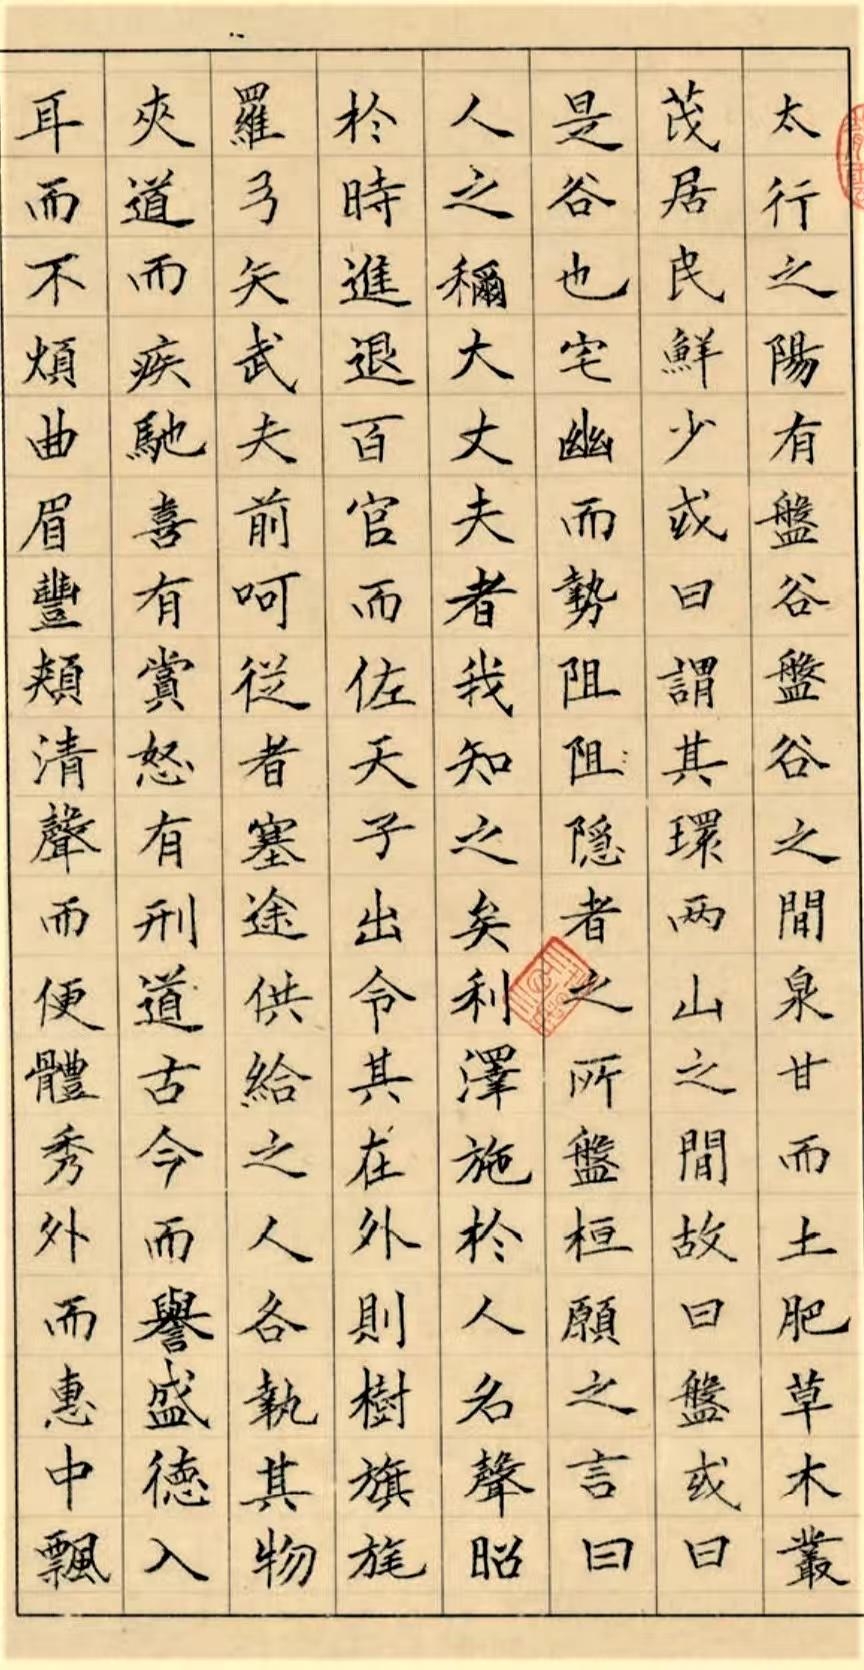 太行之陽有盤谷盤谷之間泉甘而土肥草木叢
茂居民鮮少或曰謂其環两山之間故曰盤或曰
是谷也宅幽而勢阻阻隱者之所盤桓願之言曰
人之稱大丈夫者我知之矣利澤施於人名聲昭
於時進退百官而佐天子出令其在外則樹旗旄
羅弓矢武夫前呵従者塞途供給之人各執其物
夾道而疾馳喜有賞怒有刑道古今而譽盛德入
耳而不煩曲眉豐頰清聲而便體秀外而惠中飄